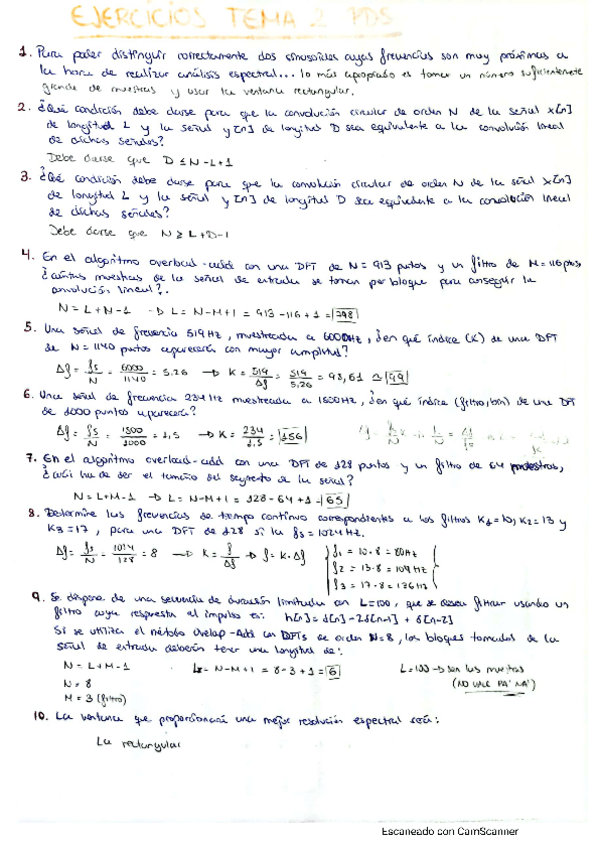 EJERCICIOS TEMA 2 PDS
1. Para poder distinguir correctamente dos sinusoides cuyas frecuencias son muy próximas a
la hora de realizar análisis espectral... lo más apropiado es tomar un número suficientemente
grande de muestras y usar la ventana rectangular.
2. ¿Qué condición debe darse para que la convolución circular de orden N de la señal x[n]
de longitud L y la señal y[n] de longitud D sea equivalente a la convolución lineal
de dichas señales?
Debe darse que D ≤ N-L+1
3. ¿Qué condición debe darse para que la convolución circular de orden N de la señal x[n]
de longitud L y la señal y[n] de longitud D sea equivalente a la convolución lineal
de dichas señales?
Debe darse que N ≥ L+D-1
4. En el algoritmo overload-add con una DFT de N=913 puntos y un filtro de M=116 ptos,
¿cuántas muestras de la señal de entrada se toman por bloque para conseguir la
convolución lineal?.
N = L+M-1 → L = N-M+1 = 913-116+1 = 798
5. Una señal de frecuencia 519 Hz, muestreada a 6000Hz, ¿en qué índice (K) de una DFT
de N=1140 puntos aparecerá con mayor amplitud?
Δf = fs/N = 6000/1140 = 5.26 → K = 519/Δf = 519/5.26 = 98,61 ≃ 99
6. Una señal de frecuencia 234 Hz muestreada a 1500Hz, ¿en qué índice (filtro, bin) de una DFT
de 1000 puntos aparecerá?
Δf = fs/N = 1500/1000 = 1,5 → K = 234/1.5 = 156
7. En el algoritmo overload-add con una DFT de 128 puntos y un filtro de 64 muestras,
¿cuál ha de ser el tamaño del segmento de la señal?
N = L+M-1 → L = N-M+1 = 128-64+1 = 65
8. Determine las frecuencias de tiempo continuo correspondientes a los filtros K1=10, K2=13 y
K3=17, para una DFT de 128 si la fs = 1024 Hz.
Δf = fs/N = 1024/128 = 8 → K = f/Δf → f = K·Δf
f1 = 10·8 = 80Hz
f2 = 13·8 = 104 Hz
f3 = 17·8 = 136Hz
9. Se dispone de una secuencia de duración limitada con L=100, que se desea filtrar usando un
filtro cuya respuesta al impulso es: h[n] = δ[n] - 2δ[n-1] + δ[n-2]
Si se utiliza el método Overlap-Add con DFTs de orden N=8, los bloques tomados de la
señal de entrada deberán tener una longitud de:
N = L+M-1 L = N-M+1 = 8-3+1 = 6 L=100 → son las muestras
N = 8 (NO VALE PA' NA')
M = 3 (filtro)
10. La ventana que proporcionará una mejor resolución espectral será:
La rectangular
Escaneado con CamScanner